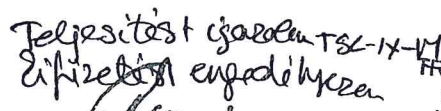 Teljesítést igazolom TSK-IX-
Kifizetést engedélyezem